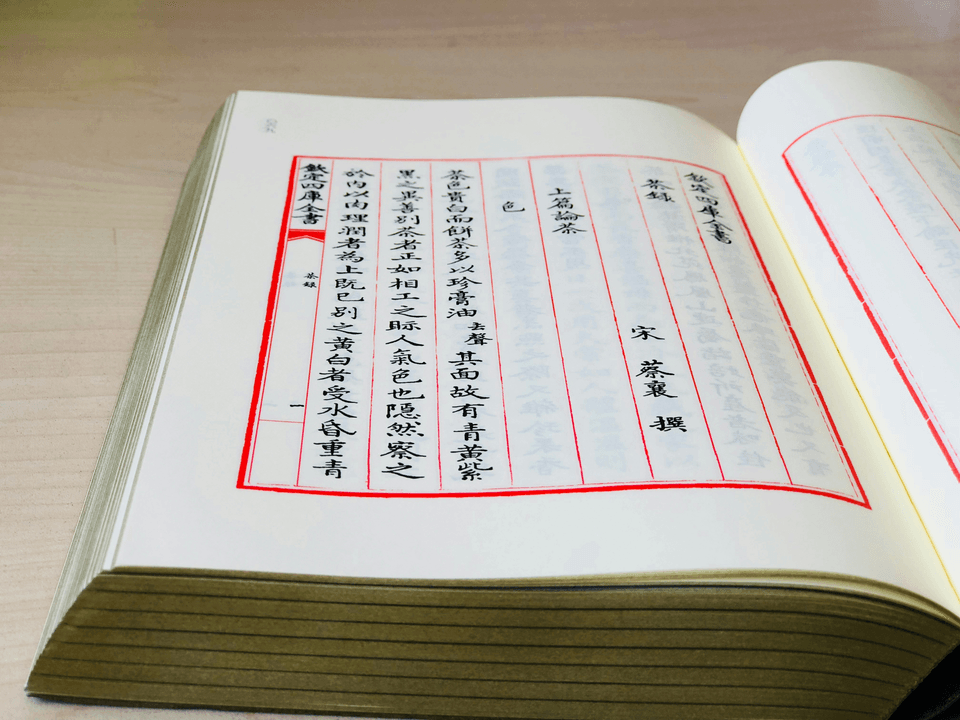 欽定四庫全書
茶錄
宋 蔡襄 撰
上篇論茶
色
茶色貴白而餅茶多以珍膏油去聲其面故有青黃紫
黑之異善別茶者正如相工之眎人氣色也隱然察之
於內以肉理潤者為上既已别之黃白者受水昏重青
欽定四庫全書
茶錄
一